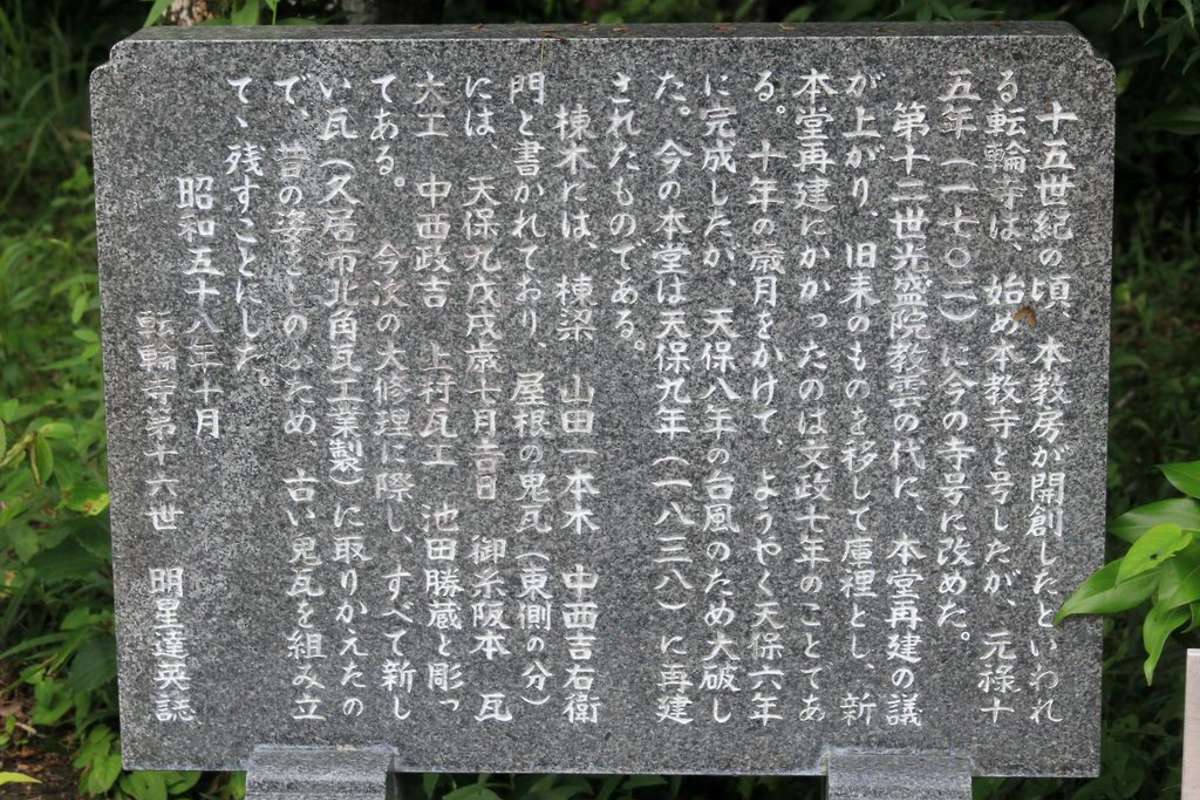 十五世紀の頃、本教房が開創したといわれ
る転輪寺は、始め本教寺と号したが、元禄十
五年(一七〇二)に今の寺号に改めた。
第十二世光盛院教雲の代に、本堂再建の議
が上がり、旧来のものを移して庫裡とし、新
本堂再建にかかったのは文政七年のことであ
る。十年の歳月をかけて、ようやく天保六年
に完成したが、天保八年の台風のため大破し
た。今の本堂は天保九年(一八三八)に再建
されたものである。
棟木には、棟梁 山田一本木 中西吉右衛
門と書かれており、屋根の鬼瓦(東側の分)
には、天保九戊戌歳十月吉日 御糸阪本 瓦
大工 中西政吉 上村瓦工 池田勝蔵と彫っ
てある。 今次の大修理に際し、すべて新し
い瓦(久居市北角瓦工業製)に取りかえたの
で、昔の姿をしのぶため、古い鬼瓦を組み立
てゝ残すことにした。
昭和五十八年十月
転輪寺第十六世 明星達英誌